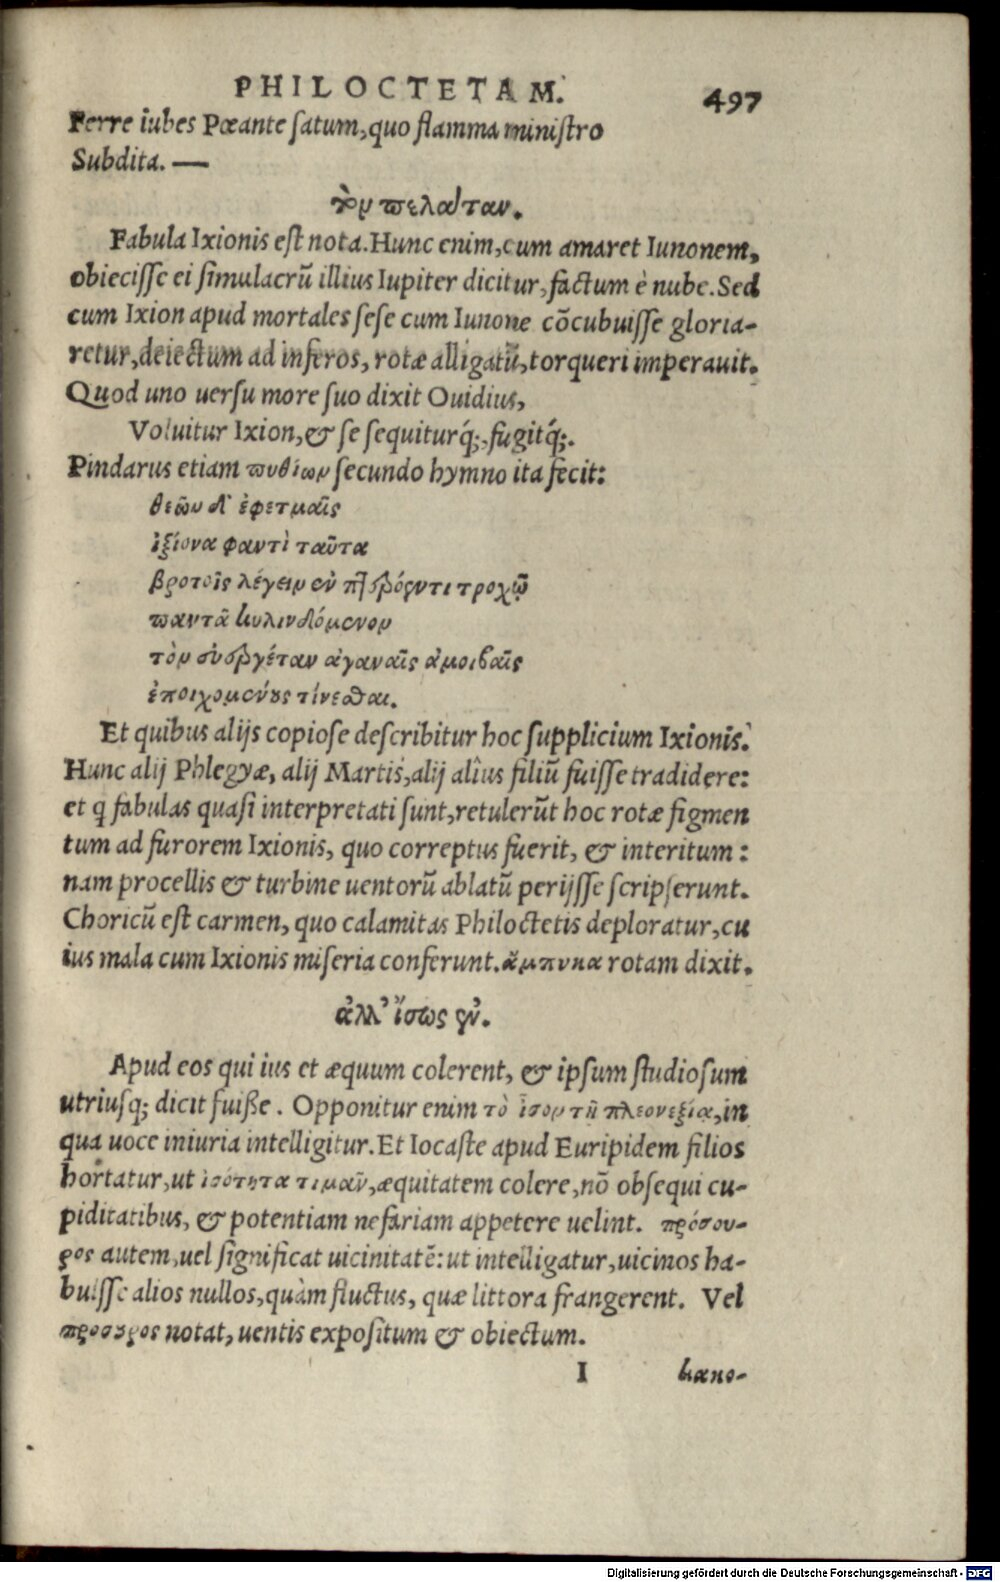 PHILOCTETAM. 497
Ferre iubes Pœante ſatum, quo flamma miniſtro
Subdita. —
τὸν πελάταν.
Fabula Ixionis eſt nota. Hunc enim, cum amaret Iunonem,
obieciſſe ei ſimulacrũ illius Iupiter dicitur, factum è nube. Sed
cum Ixion apud mortales ſeſe cum Iunone cõcubuiſſe gloria-
retur, deiectum ad inferos, rotæ alligatũ, torqueri imperauit.
Quod uno uerſu more ſuo dixit Ouidius,
Voluitur Ixion, & ſe ſequiturq́;, fugitq́;.
Pindarus etiam πυθίων ſecundo hymno ita fecit:
θεῶν δ' ἐφετμαῖς
ἰξίονα φαντὶ ταῦτα
βροτοῖς λέγειν ἐν πτερόεντι τροχῷ
παντᾶ κυλινδόμενον
τὸν εὐεργέταν ἀγαναῖς ἀμοιβαῖς
ἐποιχομένους τίνεσθαι.
Et quibus alijs copioſe deſcribitur hoc ſupplicium Ixionis.
Hunc alij Phlegyæ, alij Martis, alij alîus filiũ fuiſſe tradidere:
et q fabulas quaſi interpretati ſunt, retulerũt hoc rotæ figmen
tum ad furorem Ixionis, quo correptus fuerit, & interitum:
nam procellis & turbine uentorũ ablatũ perijſſe ſcripſerunt.
Choricũ eſt carmen, quo calamitas Philoctetis deploratur, cu
ius mala cum Ixionis miſeria conferunt. ἄμπυκα rotam dixit.
ἀλλ' ἴσως ὢν.
Apud eos qui ius et æquum colerent, & ipſum ſtudioſum
utriuſq; dicit fuiße. Opponitur enim τὸ ἶσον τῆ πλεονεξία, in
qua uoce iniuria intelligitur. Et Iocaſte apud Euripidem filios
hortatur, ut ἰσότητα τιμᾶν, æquitatem colere, nõ obſequi cu-
piditatibus, & potentiam nefariam appetere uelint. πρόσου-
ρος autem, uel ſignificat uicinitatẽ: ut intelligatur, uicinos ha-
buiſſe alios nullos, quàm fluctus, quæ littora frangerent. Vel
προσουρος notat, uentis expoſitum & obiectum.
I κακο-
Digitalisierung gefördert durch die Deutsche Forschungsgemeinschaft - DFG